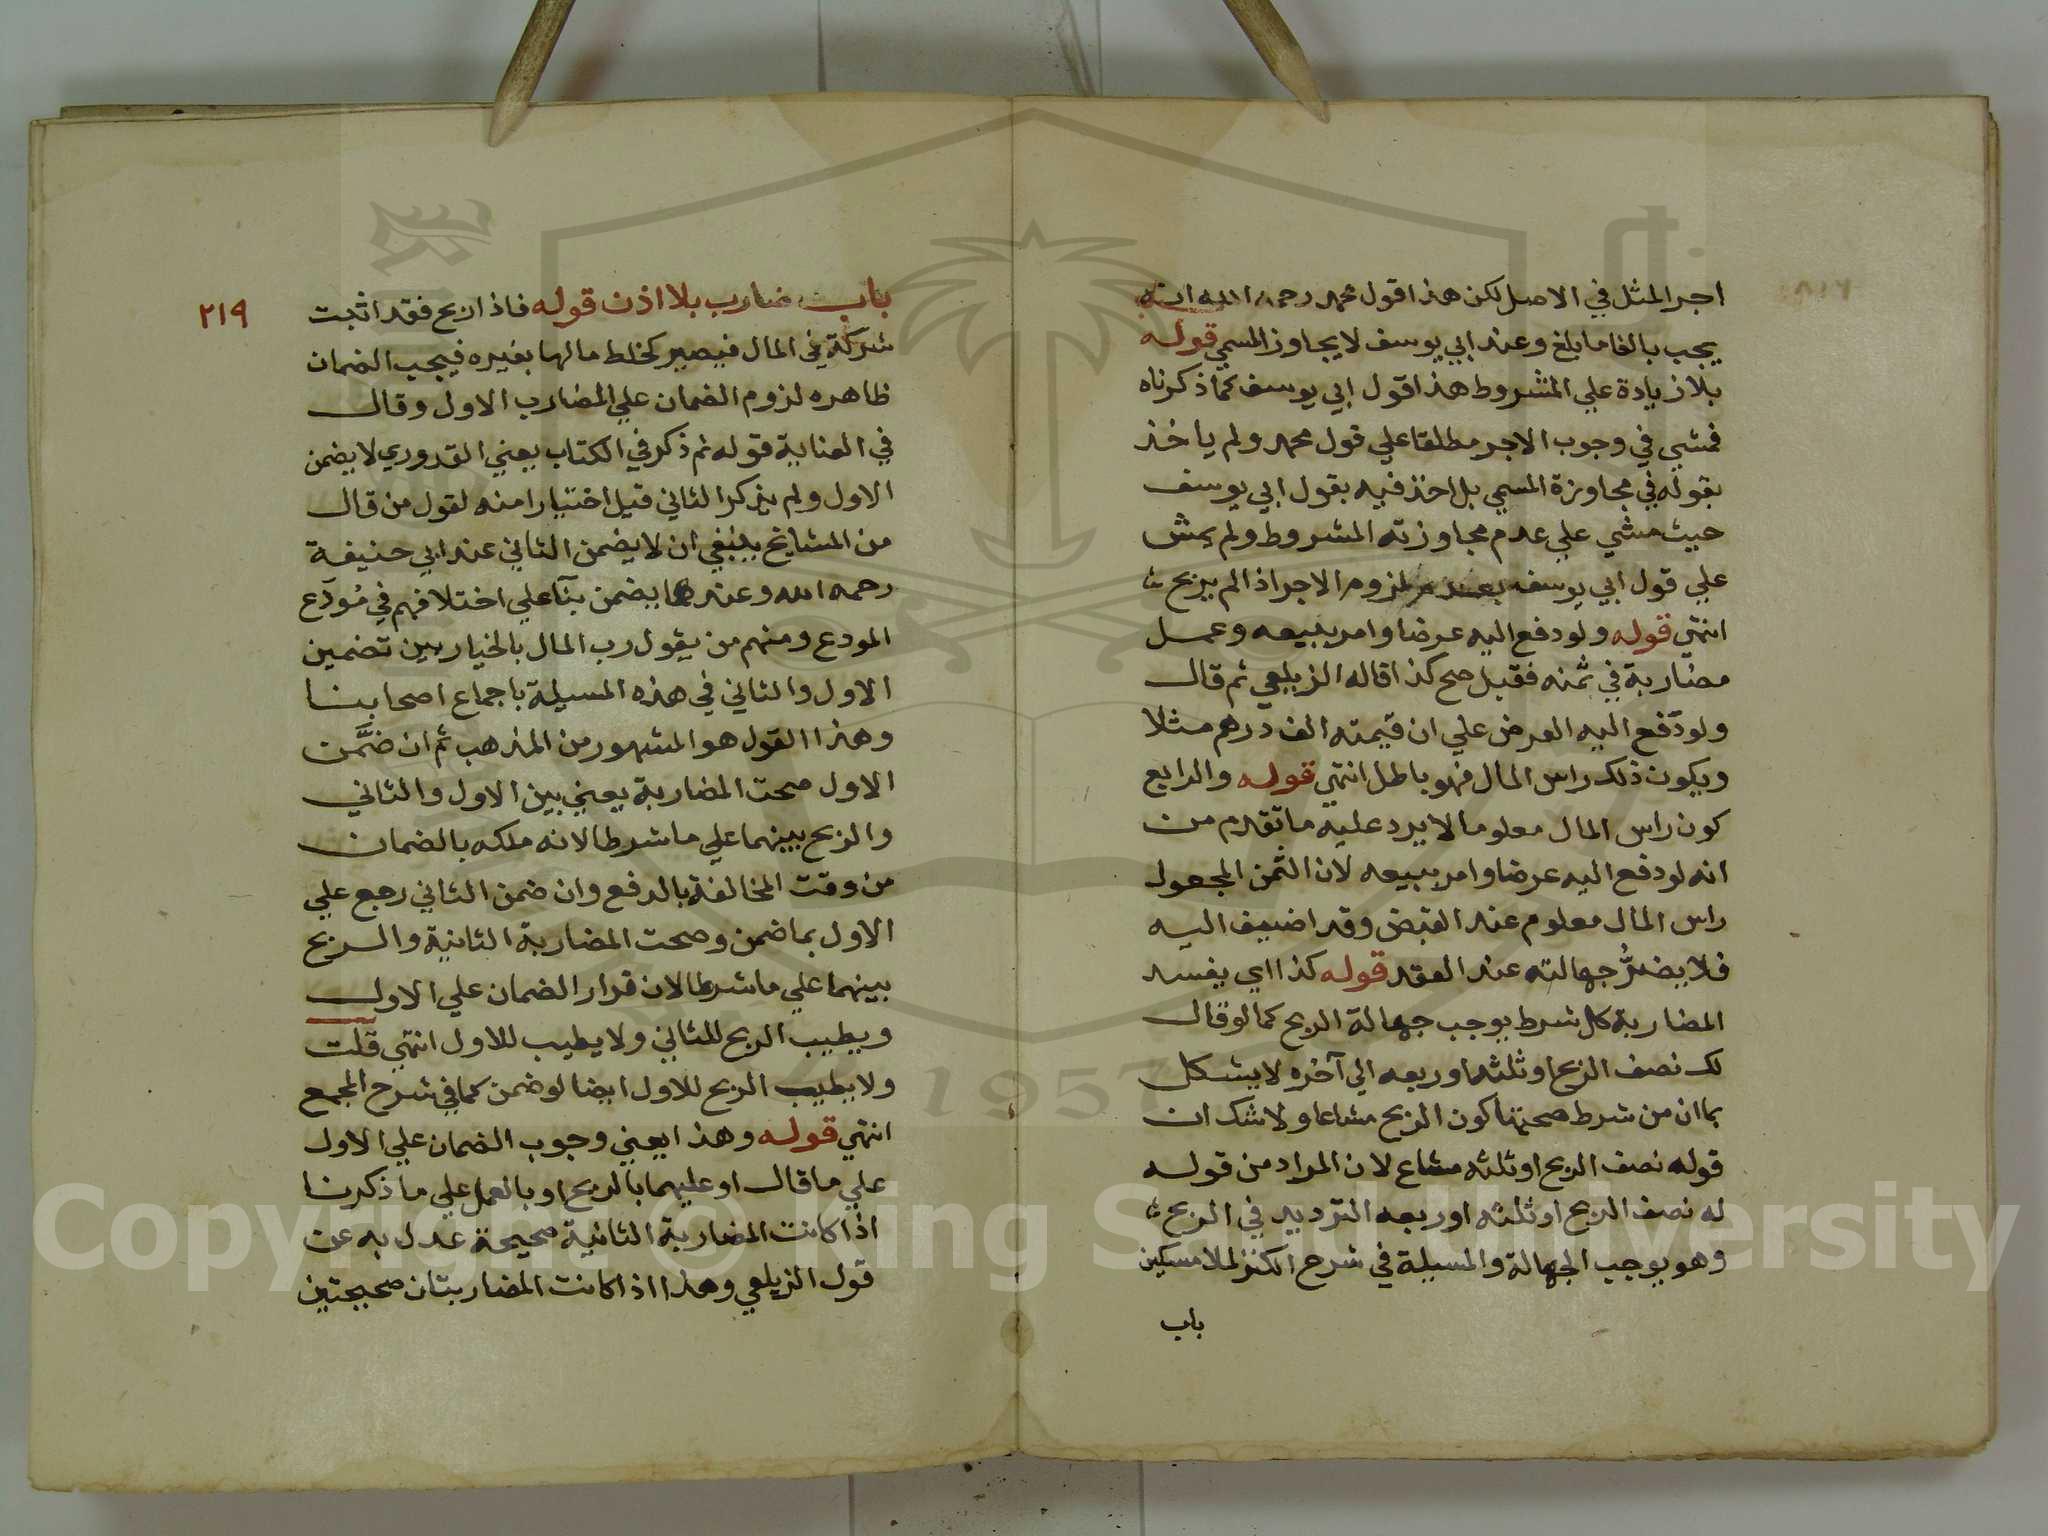 اجر المثل في الاصل لكن هذا قول محمد رحمه الله انه
يجب بالغا ما بلغ وعند ابي يوسف لا يجاوز المسمي قوله
بلا زيادة علي المشروط هذا قول ابي يوسف كما ذكرناه
فمشي في وجوب الاجر مطلقا علي قول محمد ولم ياخذ
بقوله في مجاوزة المسمي بل اخذ فيه بقول ابي يوسف
حيث مشي علي عدم مجاوزته المشروط ولم يمش
علي قول ابي يوسف بعدم لزوم الاجر اذا لم يربح
انتهي قوله ولو دفع اليه عرضا وامر ببيعه وعمل
مضاربة في ثمنه فقبل صح كذا قاله الزيلعي ثم قال
ولو دفع اليه العرض علي ان قيمته الف درهم مثلا
ويكون ذلك راس المال فهو باطل انتهي قوله والرابع
كون راس المال معلوما لا يرد عليه ما تقدم من
انه لو دفع اليه عرضا وامر ببيعه لان الثمن المجعول
راس المال معلوم عند القبض وقد اضيف اليه
فلا يضرُّ جهالته عند العقد قوله كذا اي يفسد
المضاربة كل شرط يوجب جهالة الربح كما لو قال
لك نصف الربح او ثلثه او ربعه الي آخره لا يشكل
بما ان من شرط صحتها كون الربح مشاعا ولا شك ان
قوله نصف الربح او ثلثه مشاع لان المراد من قوله
له نصف الربح او ثلثه او ربعه الترديد في الربح
وهو يوجب الجهالة والمسيلة في شرح الكنز لملا مسكين
باب
٢١٩
باب مضارب بلا اذن قوله فاذا ربح فقد اثبت
شركة في المال فيصير كخلط مالها بغيره فيجب الضمان
ظاهره لزوم الضمان علي المضارب الاول وقال
في العناية قوله ثم ذكر في الكتاب يعني القدوري لا يضمن
الاول ولم يذكر الثاني قيل اختيارا منه لقول من قال
من المشايخ ينبغي ان لا يضمن الثاني عند ابي حنيفة
رحمه الله وعندهما يضمن بنآ علي اختلافهم في مُودَع
المودع ومنهم من يقول رب المال بالخيار بين تضمين
الاول والثاني في هذه المسيلة باجماع اصحابنا
وهذا القول هو المشهور من المذهب ثم ان ضمَّن
الاول صحت المضاربة يعني بين الاول والثاني
والربح بينهما علي ما شرطا لانه ملكه بالضمان
من وقت المخالفة بالدفع وان ضمن الثاني رجع علي
الاول بما ضمن وصحت المضاربة الثانية والربح
بينهما علي ما شرطا لان قرار الضمان علي الاول
ويطيب الربح للثاني ولا يطيب للاول انتهي قلت
ولا يطيب الربح للاول ايضا لو ضمن كما في شرح المجمع
انتهي قوله وهذا يعني وجوب الضمان علي الاول
علي ما قال او عليهما بالربح او بالعمل علي ما ذكرنا
اذا كانت المضاربة الثانية صحيحة عدل به عن
قول الزيلعي وهذا اذا كانت المضاربتان صحيحتين
1957
Copyright © King Saud University